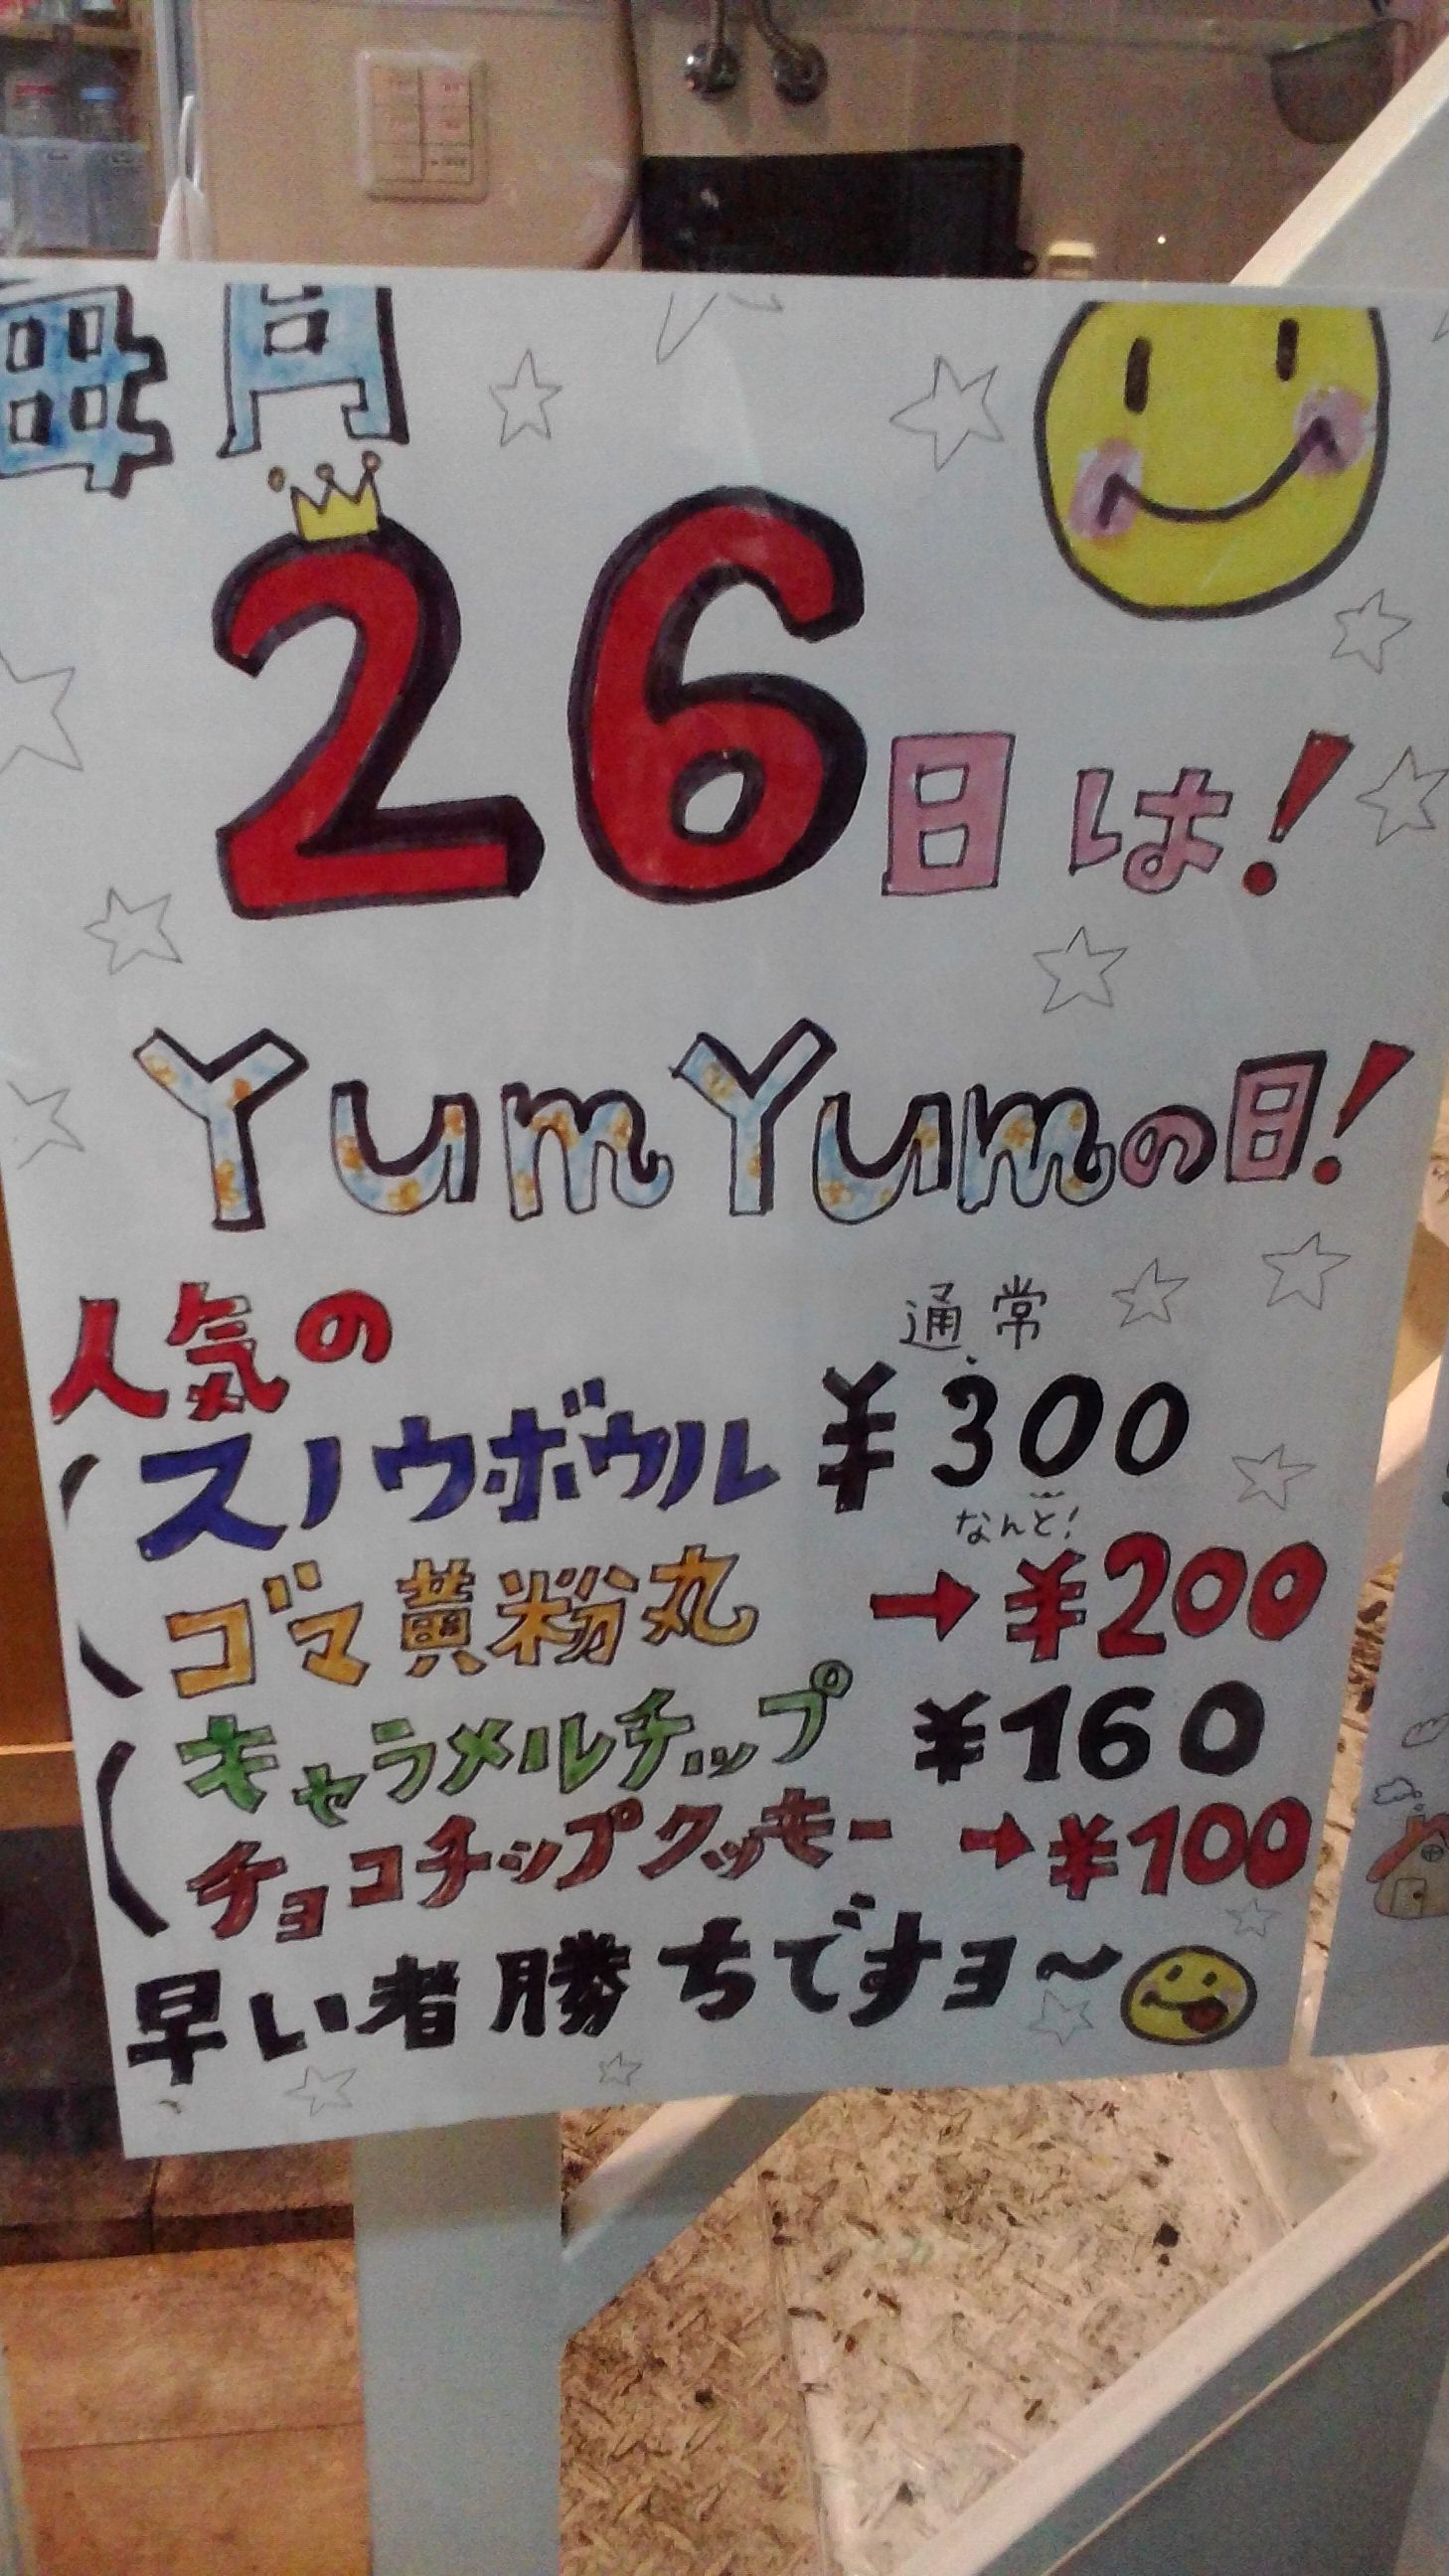 毎月
26日は!
YumYumの日!
人気の
通常
スノウボウル ¥300
なんと!
ゴマ黄粉丸 →¥200
キャラメルチップ ¥160
チョコチップクッキー →¥100
早い者勝ちですヨ～